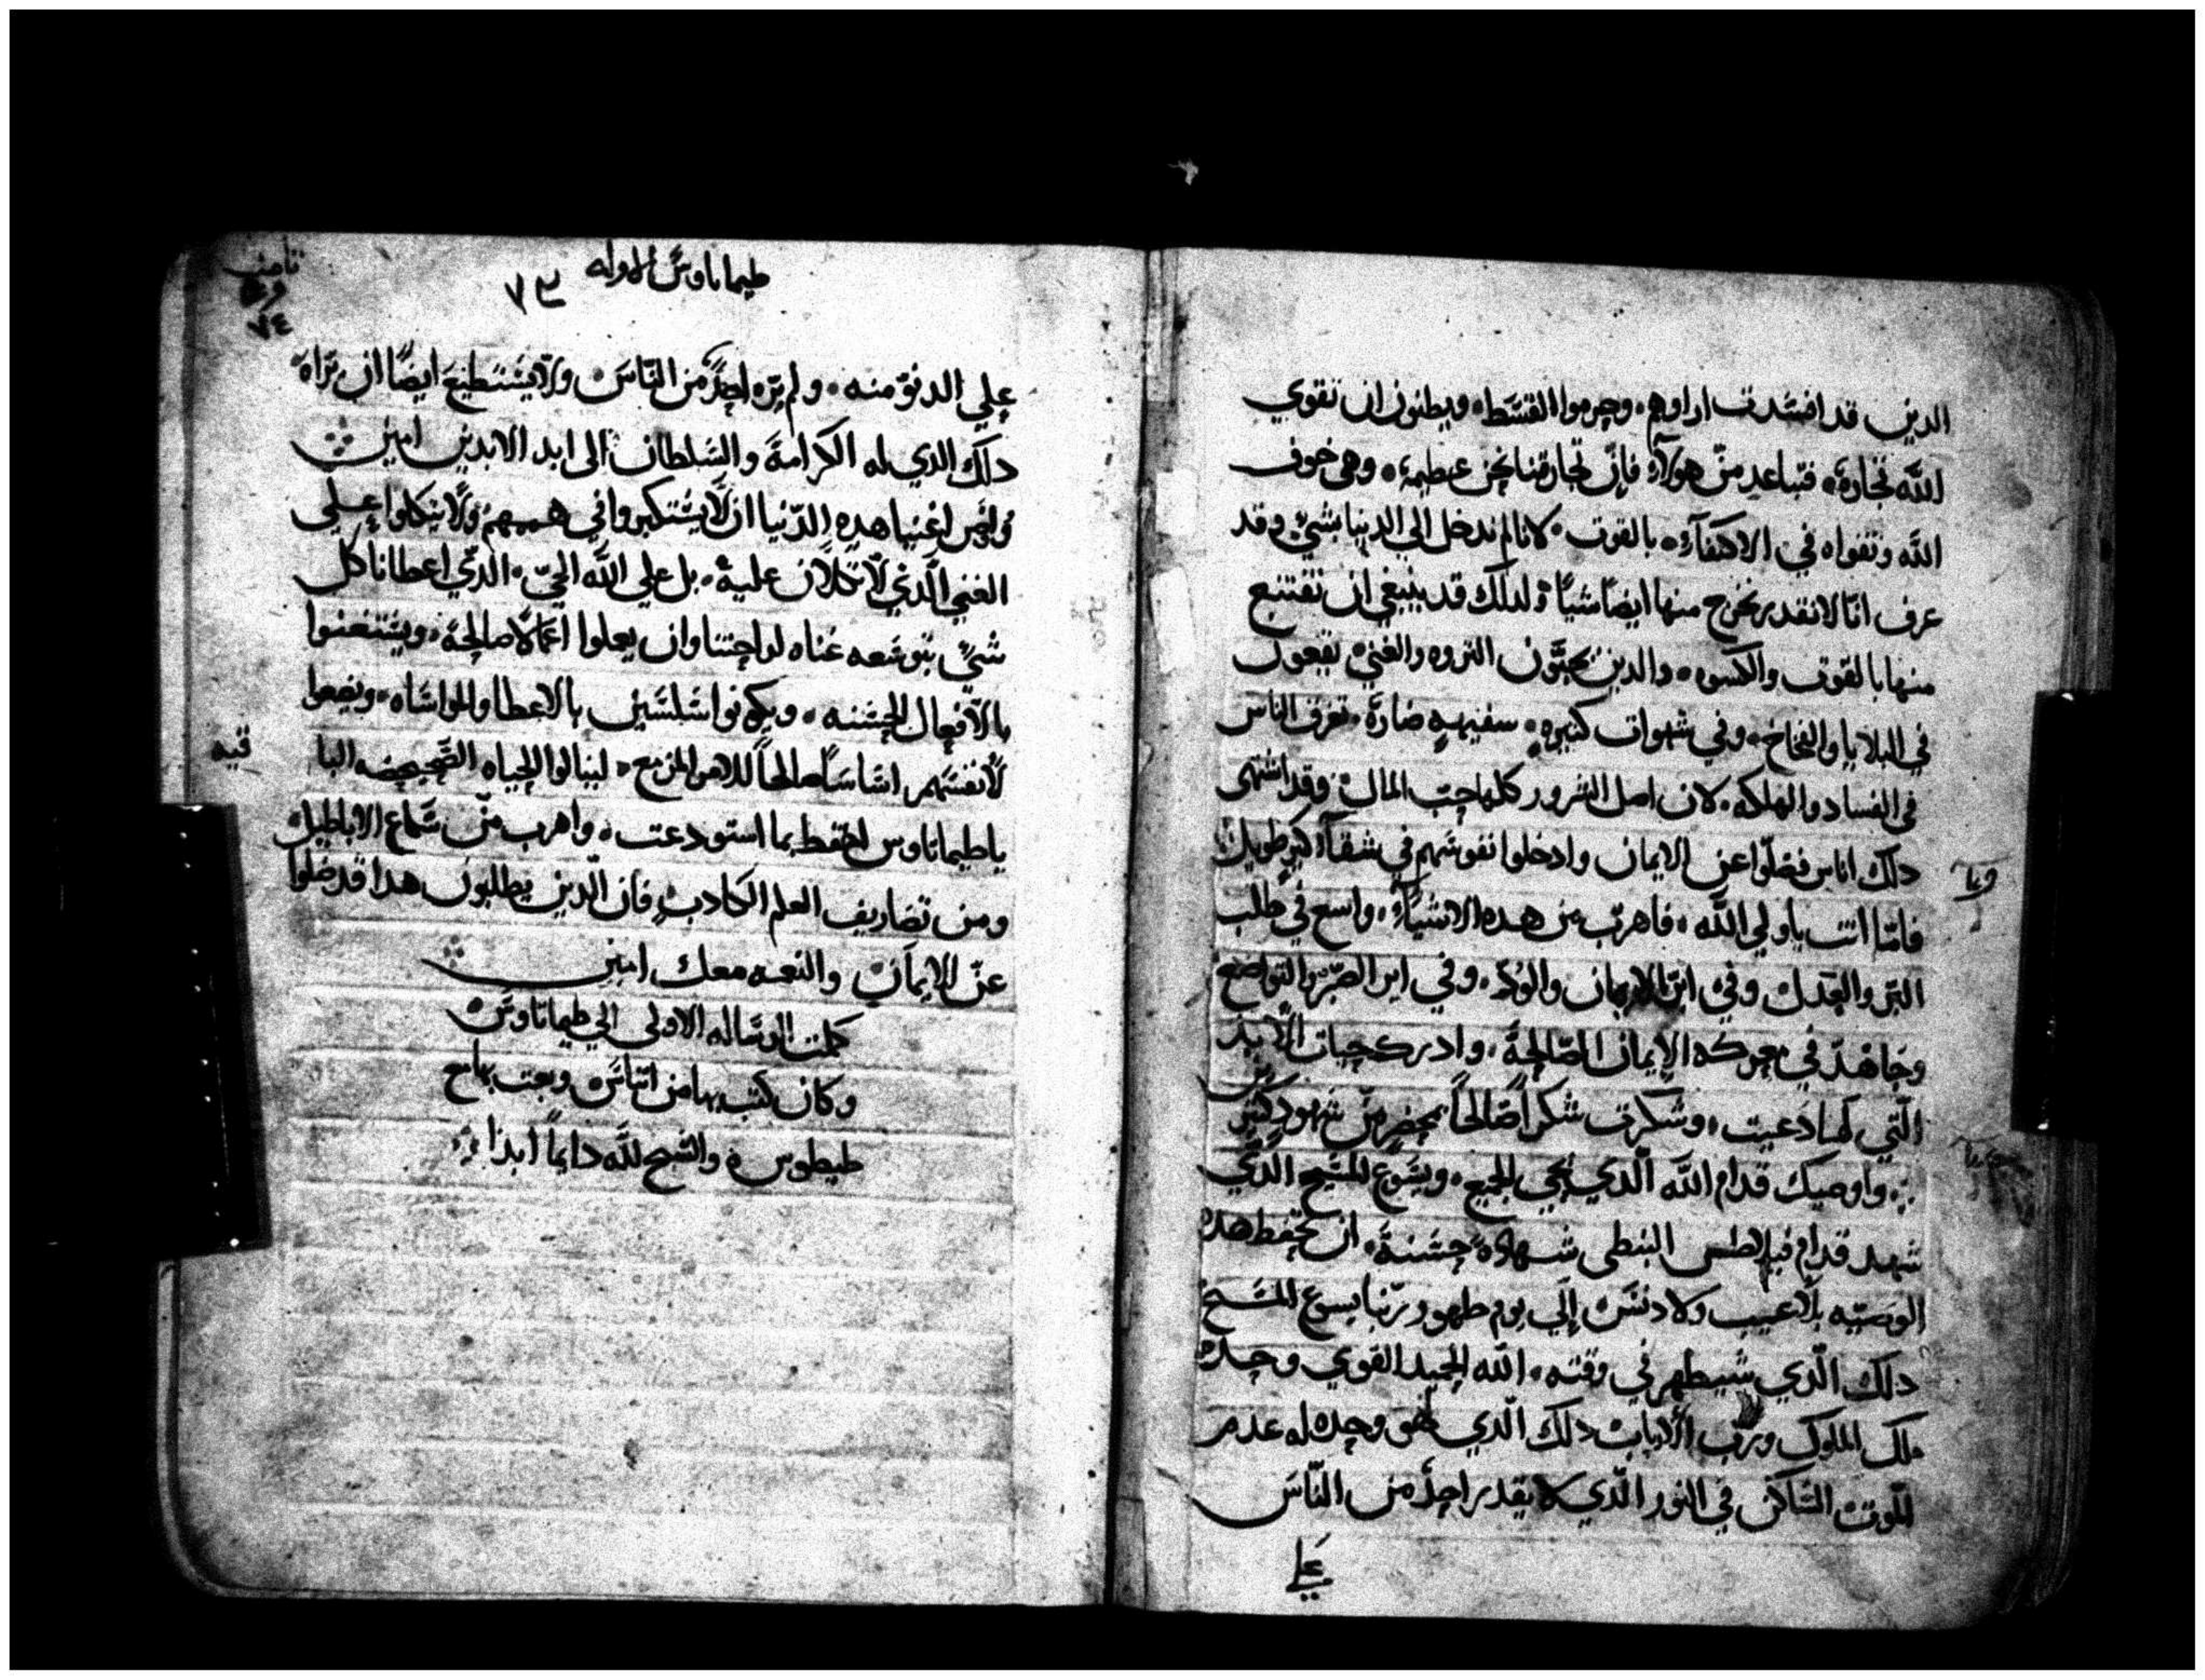 الدين قد افسدت اراوهم. وحرموا القسط. ويطنون ان تقوي
الله تجارة. فتباعد من هولآء فان تجارتنا نحن عطيمة. وهي خوف
الله وتقواه في الاكتفآء بالقوت. لانا لم ندخل الي الدنيا بشي وقد
عرف انا لا نقدر نخرج منها ايضا شيا ولدلك قد ينبغي ان نقتنع
منها بالقوت والكسوه. والدين يحبون التروه والغني يقعون
في البلايا والفخاخ. وفي شهوات كتيره. سفيهه ضارة. تغرق الناس
في الفساد والهلكه. لان اصل الشرور كلها حب المال وقد اشتهى
دلك اناس فضلوا عن الايمان وادخلوا نفوسهم في شقآء كبير طويل
فاما انت ياولي الله. فاهرب من هده الاشيآء. واسع في طلب
البر والعدل وفي اتر الايمان والود. وفي اتر الصبر والتواضع
وجاهد في معركة الايمان الصالحة. وادرك حيات الابد
التي لها دعيت. وشكرت شكرا صالحا بمحضر من شهود كتير
واوصيك قدام الله الدي يحي الجميع. ويسوع المسيح الدي
شهد قدام فيلاطس البنطي شهادة حسنة. ان تحفط هده
الوصيه بلا عيب ولا دنس الي يوم طهور ربنا يسوع المسيح
دلك الدي سيطهر في وقته. الله المجيد القوي وحده
ملك الملوك ورب الارباب دلك الدي هو وحده له عدم
الموت الساكن في النور الدي لا يقدر احد من الناس
علي
طيماتاوس الاوله
٧٣
٧٤
علي الدنو منه. ولم يره احد من الناس. ولا يستطيع ايضا ان يراه
دلك الدي له الكرامة والسلطان الى ابد الابدين امين
واوص اغنيا هده الدنيا ان لا يستكبروا في هممهم ولا يتكلوا علي
الغني الدي لا تكلان عليه. بل علي الله الحي. الدي اعطانا كل
شي بتوسعه غناه لراحتنا وان يعملوا اعمالا صالحة. ويستغنوا
بالافعال الحسنه. ويكونوا سلسين بالاعطا والمواساه. ويضعوا
لانفسهم اساسا صالحا للامر المزمع. لينالوا الحياه الصحيحه البا
قيه
ياطيماتاوس احتفط بما استودعت. واهرب من سماع الاباطيل
ومن تصاريف العلم الكادب فان الدين يطلبون هدا قد ضلوا
عن الايمان والنعمه معك امين
كملت الرساله الاولى الي طيماتاوس
وكان كتب بها من اتناس وبعت بها مع
طيطوس والسبح لله دايما ابدا